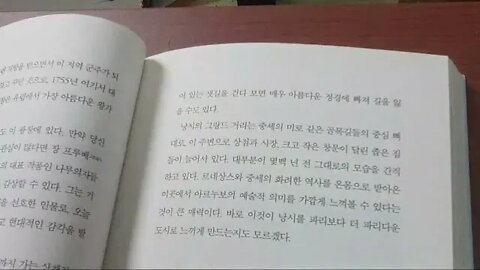 광 지팡을 받으면서 이 지역 군주가 되
고 꾸민 곳으로, 1755년 여기서 대
장은 유럽에서 가장 아름다운 왕가
도 이 광장에 있다. 만약 당신
관심이 많다면 장 프루베
의 대표 작품인 나무의자들
감상할 수 있다. 그는 거
을 선호한 인물로, 오늘
고 현대적인 감각을 발
까지 가는 산책
이 있는 샛길을 걷다 보면 매우 아름다운 정경에 빠져 길을 잃
을 수도 있다.
낭시의 그랑드 거리는 중세의 미로 같은 골목길들의 중심 뼈
대로, 이 주변으로 상점과 시장, 크고 작은 창문이 달린 좁은 집
들이 늘어서 있다. 대부분이 몇백 년 전 그대로의 모습을 간직
하고 있다. 르네상스와 중세의 화려한 역사를 온몸으로 받아온
이곳에서 아르누보의 예술적 의미를 가깝게 느껴볼 수 있다는
것이 큰 매력이다. 바로 이것이 낭시를 파리보다 더 파리다운
도시로 느끼게 만드는지도 모르겠다.